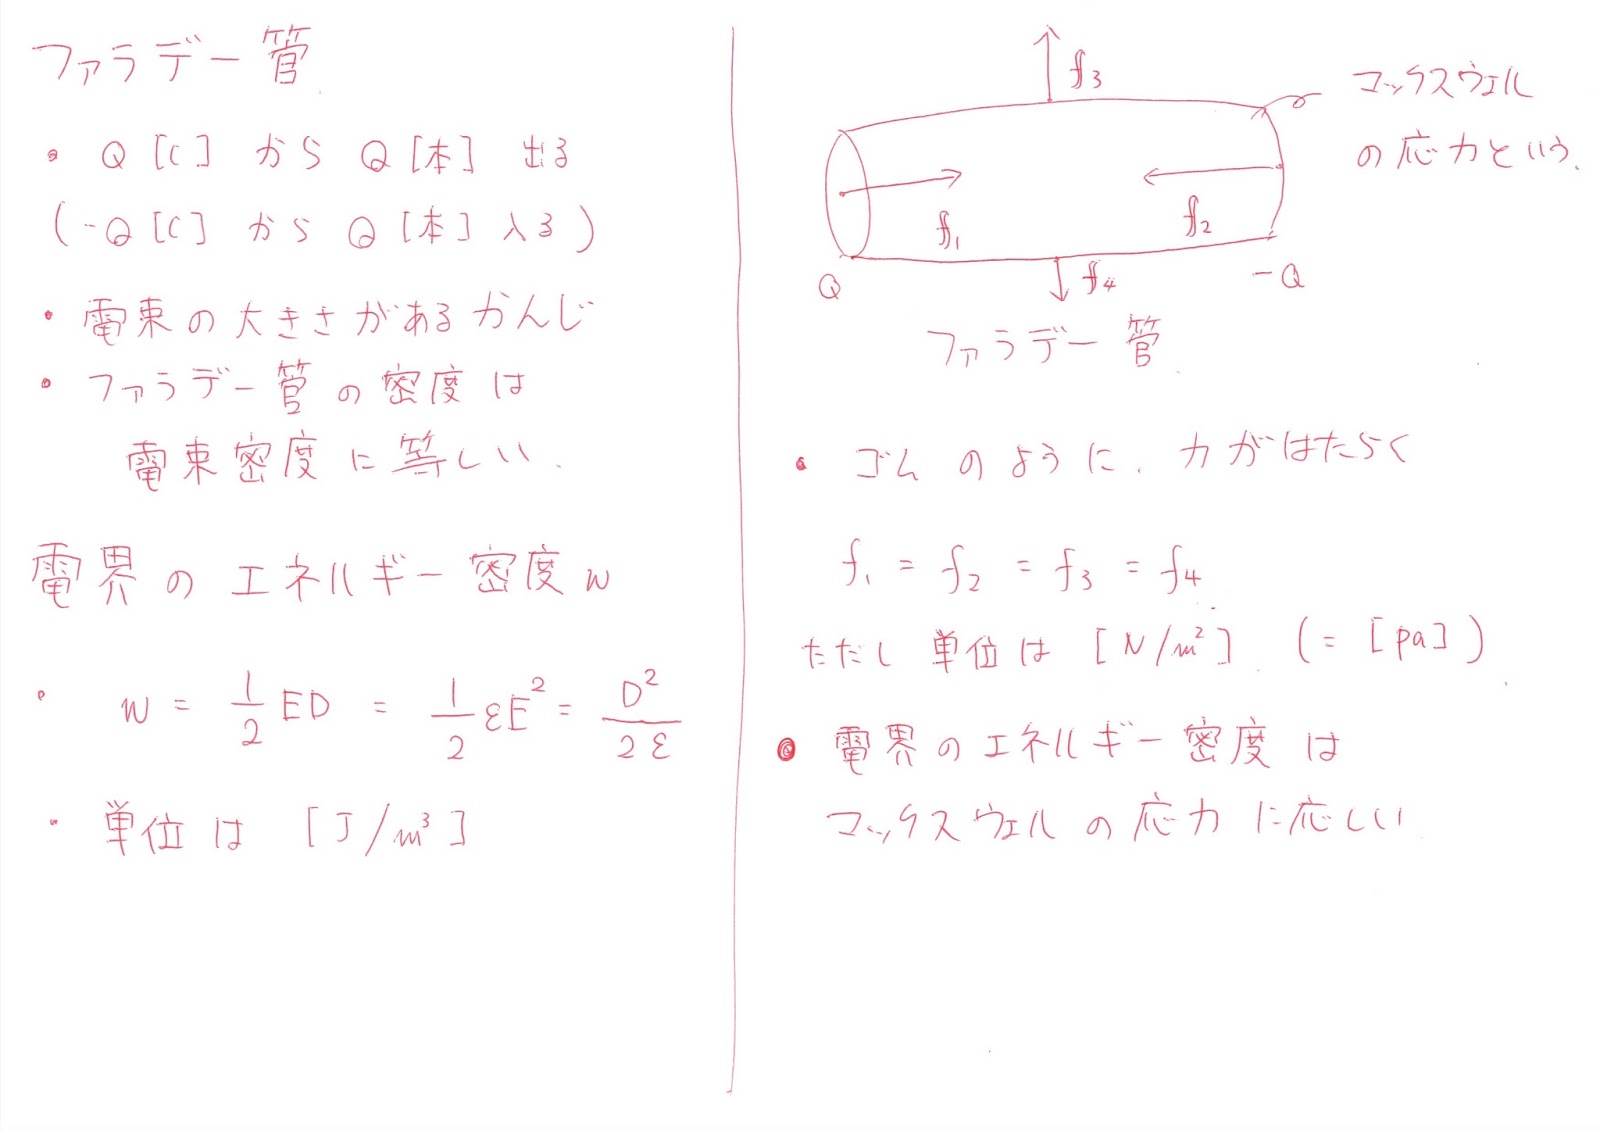 ファラデー管
・ Q [C] から Q [本] 出る
(-Q [C] から Q [本] 入る)
・ 電束の大きさがあるかんじ
・ ファラデー管の密度は
電束密度に等しい.
電界のエネルギー密度 w
・ w = 1/2 ED = 1/2 εE² = D²/2ε
・ 単位は [J/m³]
f3
マックスウェル
の応力という.
f1
f2
Q
f4
-Q
ファラデー管
・ ゴムのように. 力がはたらく
f1 = f2 = f3 = f4
ただし 単位は [N/m²] (= [pa])
・ 電界のエネルギー密度は
マックスウェルの応力に応しい